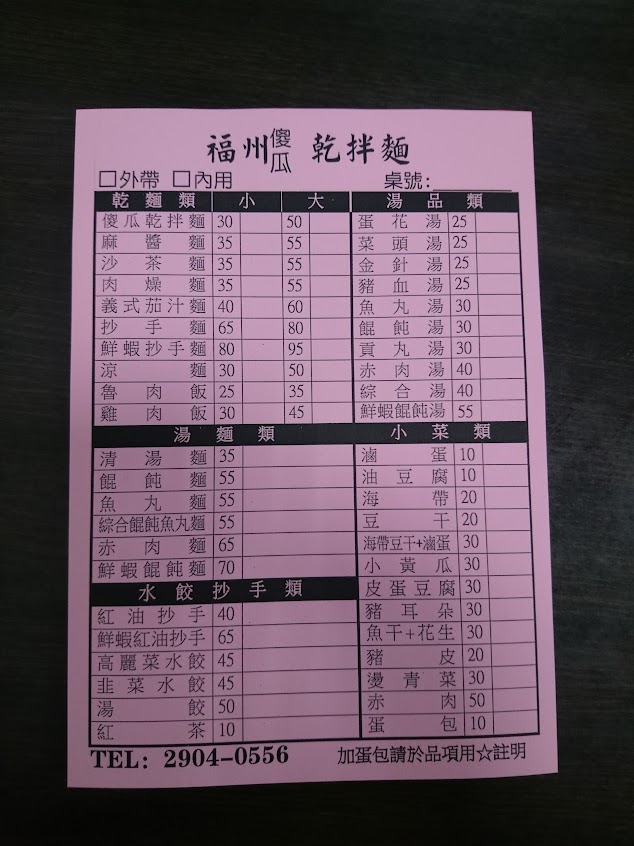 福州傻瓜乾拌麵
□外帶 □內用 桌號：
乾麵類 小 大
傻瓜乾拌麵 30 50
麻醬麵 35 55
沙茶麵 35 55
肉燥麵 35 55
義式茄汁麵 40 60
抄手麵 65 80
鮮蝦抄手麵 80 95
涼麵 30 50
魯肉飯 25 35
雞肉飯 30 45
湯麵類
清湯麵 35
餛飩麵 55
魚丸麵 55
綜合餛飩魚丸麵 55
赤肉麵 65
鮮蝦餛飩麵 70
水餃抄手類
紅油抄手 40
鮮蝦紅油抄手 65
高麗菜水餃 45
韭菜水餃 45
湯餃 50
紅茶 10
湯品類
蛋花湯 25
菜頭湯 25
金針湯 25
豬血湯 25
魚丸湯 30
餛飩湯 30
貢丸湯 30
赤肉湯 40
綜合湯 40
鮮蝦餛飩湯 55
小菜類
滷蛋 10
油豆腐 10
海帶 20
豆干 20
海帶豆干+滷蛋 30
小黃瓜 30
皮蛋豆腐 30
豬耳朵 30
魚干+花生 30
豬皮 20
燙青菜 30
赤肉 50
蛋包 10
TEL: 2904-0556 加蛋包請於品項用☆註明